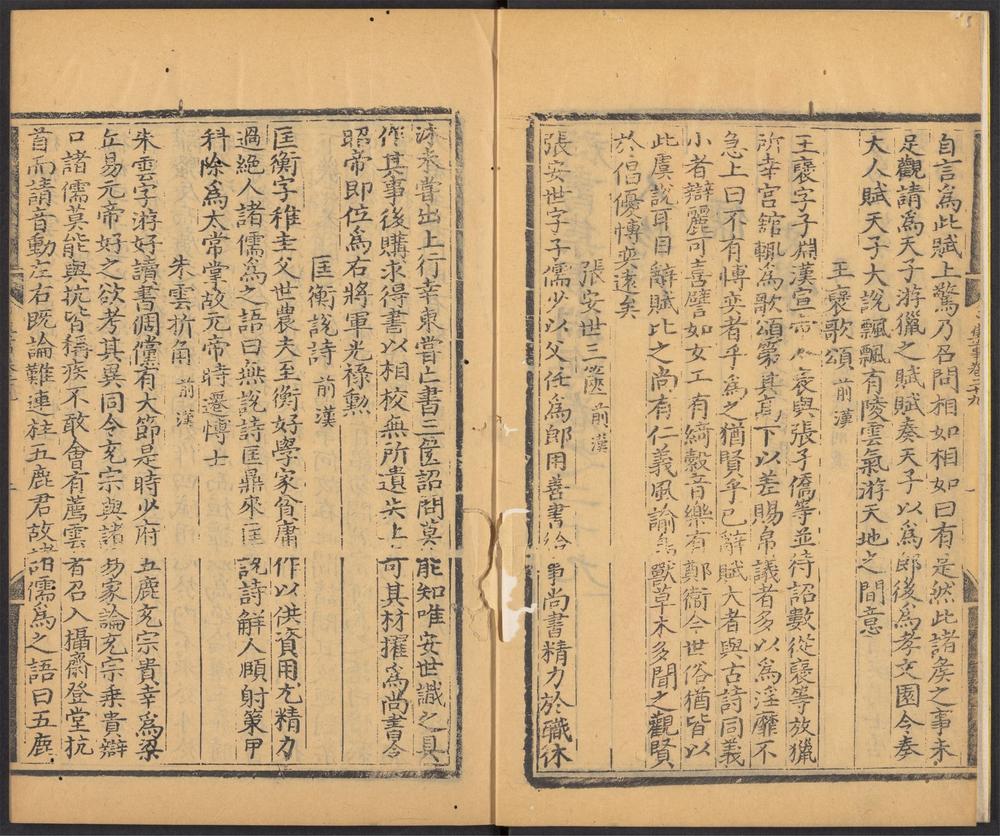 自言為此賦上驚乃召問相如相如曰有是然此諸矦之事未
足觀請為天子游獵之賦賦奏天子以為郎後為孝文園令奏
大人賦天子大說飄飄有陵雲氣游天地之間意
王襃歌頌 前漢
王襃字子淵漢宣帝襃與張子僑等並待詔數從襃等放獵
所幸宮舘輒為歌頌第其高下以差賜帛議者多以為淫靡不
急上曰不有愽奕者乎為之猶賢乎已辭賦大者與古詩同義
小者辯麗可喜譬如女工有綺縠音樂有鄭衛今世俗猶皆以
此虞說耳目辭賦比之尚有仁義風諭鳥獸草木多聞之觀賢
於倡優愽奕遠矣
張安世三篋 前漢
張安世字子儒少以父任為郎用善書給事尚書精力於職休
沐未嘗出上行幸東嘗亡書三篋詔問莫能知唯安世識之具
作其事後購求得書以相校無所遺失上可其材擢為尚書令
昭帝即位為右將軍光祿勲
匡衡說詩 前漢
匡衡字稚圭父世農夫至衡好學家貧庸作以供資用尤精力
過絕人諸儒為之語曰無說詩匡鼎來匡說詩解人頤射策甲
科除為太常掌故元帝時遷愽士
朱雲折角 前漢
朱雲字游好讀書倜儻有大節是時少府五鹿充宗貴幸為梁
丘易元帝好之欲考其異同令充宗與諸易家論充宗乗貴辯
口諸儒莫能與抗皆稱疾不敢會有薦雲者召入攝齋登堂抗
首而請音動左右既論難連柱五鹿君故諸儒為之語曰五鹿